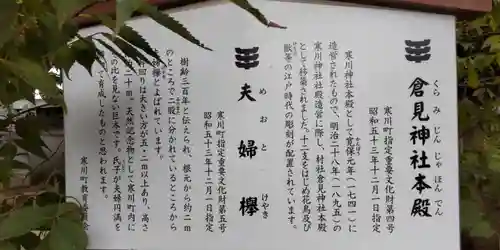 くらみじんじゃほんでん
倉見神社本殿
寒川町指定重要文化財第四号
昭和五十三年十二月一日指定
寒川神社本殿として寛保元年(一七四一)
造営されたもので、明治二十八年(一八九五)の
寒川神社殿造営に際し、村社倉見神社本殿
として移築されました。十二支をはじめ花鳥及び
獣等の江戸時代の彫刻が配置されています。
めおとけやき
夫婦欅
寒川町指定重要文化財第五号
昭和五十三年十二月一日指定
樹齢三百年と伝えられ、根元から約二m
のところで二股に分かれているところから
欅とよばれています。
周りは大きい方が五・二m以上あり、高さ
二十m、天然記念物として寒川町内に
の比を見ない巨木です。氏子が夫婦円満を
て育成したものと思われます。
寒川町教育委員会